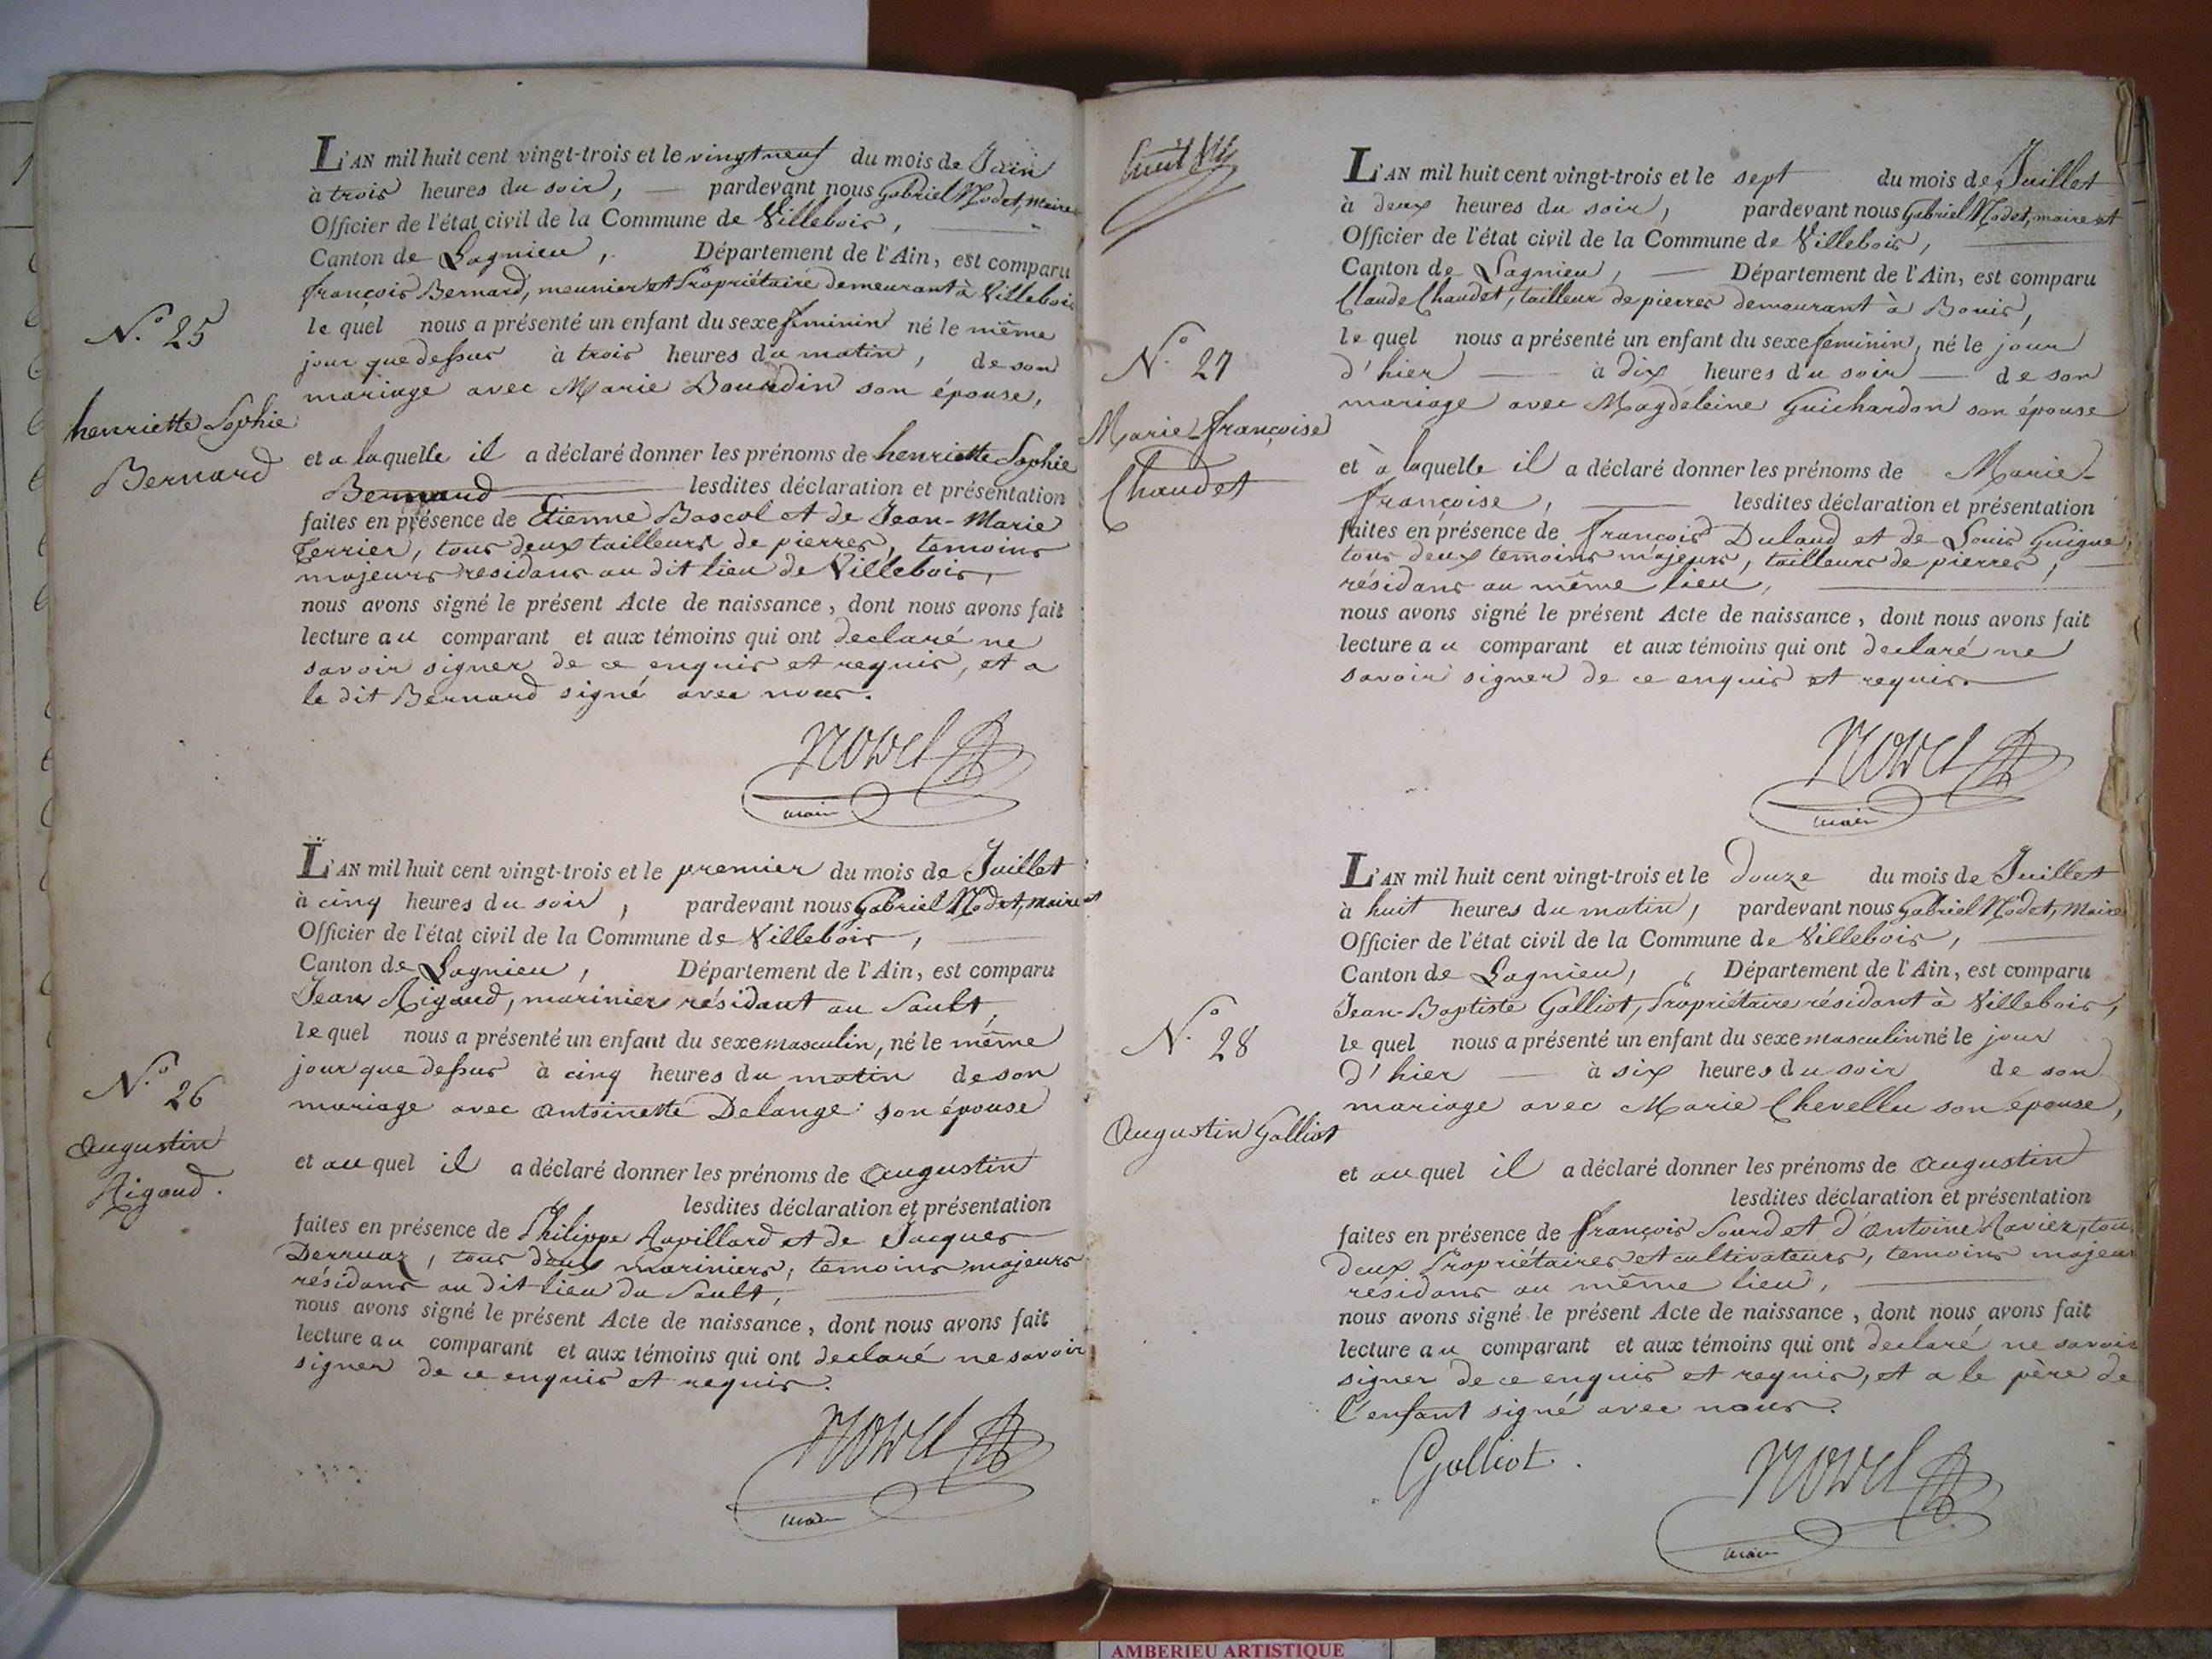 L'AN mil huit cent vingt-trois et le vingt neuf du mois de Juin
à trois heures du soir, pardevant nous Gabriel Nodet, maire
Officier de l'état civil de la Commune de Villebois,
Canton de Lagnieu, Département de l'Ain, est comparu
françois Bernard, meunier et Propriétaire demeurant à Villebois
le quel nous a présenté un enfant du sexe feminin né le même
jour que dessus à trois heures du matin, de son
mariage avec Marie Bourdin son épouse,
et a laquelle il a déclaré donner les prénoms de henriette Sophie
Bernard lesdites déclaration et présentation
faites en présence de Etienne Bascol et de Jean-Marie
Terrier, tous deux tailleurs de pierres, temoins
majeurs residans au dit lieu de Villebois,
nous avons signé le présent Acte de naissance, dont nous avons fait
lecture au comparant et aux témoins qui ont declaré ne
savoir signer de ce enquis et requis, et a
le dit Bernard signé avec nous.
N.° 25
henriette Sophie
Bernard
maire
L'AN mil huit cent vingt-trois et le premier du mois de Juillet
à cinq heures du soir, pardevant nous Gabriel Nodet, maire et
Officier de l'état civil de la Commune de Villebois,
Canton de Lagnieu, Département de l'Ain, est comparu
Jean Rigaud, marinier résidant au Sault,
le quel nous a présenté un enfant du sexe masculin, né le même
jour que dessus à cinq heures du matin de son
mariage avec Antoinette Delange son épouse
et au quel il a déclaré donner les prénoms de Augustin
lesdites déclaration et présentation
faites en présence de Philippe Ravillard et de Jacques
Derruaz, tous deux mariniers, temoins majeurs
résidans au dit lieu du Sault,
nous avons signé le présent Acte de naissance, dont nous avons fait
lecture au comparant et aux témoins qui ont declaré ne savoir
signer de ce enquis et requis.
N.° 26
Augustin
Rigaud.
maire
L'AN mil huit cent vingt-trois et le sept du mois de Juillet
à deux heures du soir, pardevant nous Gabriel Nodet, maire et
Officier de l'état civil de la Commune de Villebois,
Canton de Lagnieu, Département de l'Ain, est comparu
Claude Chaudet, tailleur de pierres demeurant à Bouis,
le quel nous a présenté un enfant du sexe feminin, né le jour
d'hier à dix heures du soir de son
mariage avec Magdeleine Guichardon son épouse
et à laquelle il a déclaré donner les prénoms de Marie-
françoise, lesdites déclaration et présentation
faites en présence de françois Dulaud et de Louis Guigue,
tous deux temoins majeurs, tailleurs de pierres,
résidans au même lieu,
nous avons signé le présent Acte de naissance, dont nous avons fait
lecture au comparant et aux témoins qui ont declaré ne
savoir signer de ce enquis et requis.
N.° 27
Marie-françoise
Chaudet
maire
L'AN mil huit cent vingt-trois et le douze du mois de Juillet
à huit heures du matin, pardevant nous Gabriel Nodet, Maire
Officier de l'état civil de la Commune de Villebois,
Canton de Lagnieu, Département de l'Ain, est comparu
Jean-Baptiste Galliot, Propriétaire résidant à Villebois,
le quel nous a présenté un enfant du sexe masculin né le jour
d'hier à six heures du soir de son
mariage avec Marie Chevellu son épouse,
et au quel il a déclaré donner les prénoms de Augustin
lesdites déclaration et présentation
faites en présence de françois Sourd et d'Antoine Ravier, tous
deux Propriétaires et cultivateurs, temoins majeurs
résidans au même lieu,
nous avons signé le présent Acte de naissance, dont nous avons fait
lecture au comparant et aux témoins qui ont declaré ne savoir
signer de ce enquis et requis, et a le père de
l'enfant signé avec nous.
N.° 28
Augustin Galliot
Galliot.
maire
AMBERIEU ARTISTIQUE